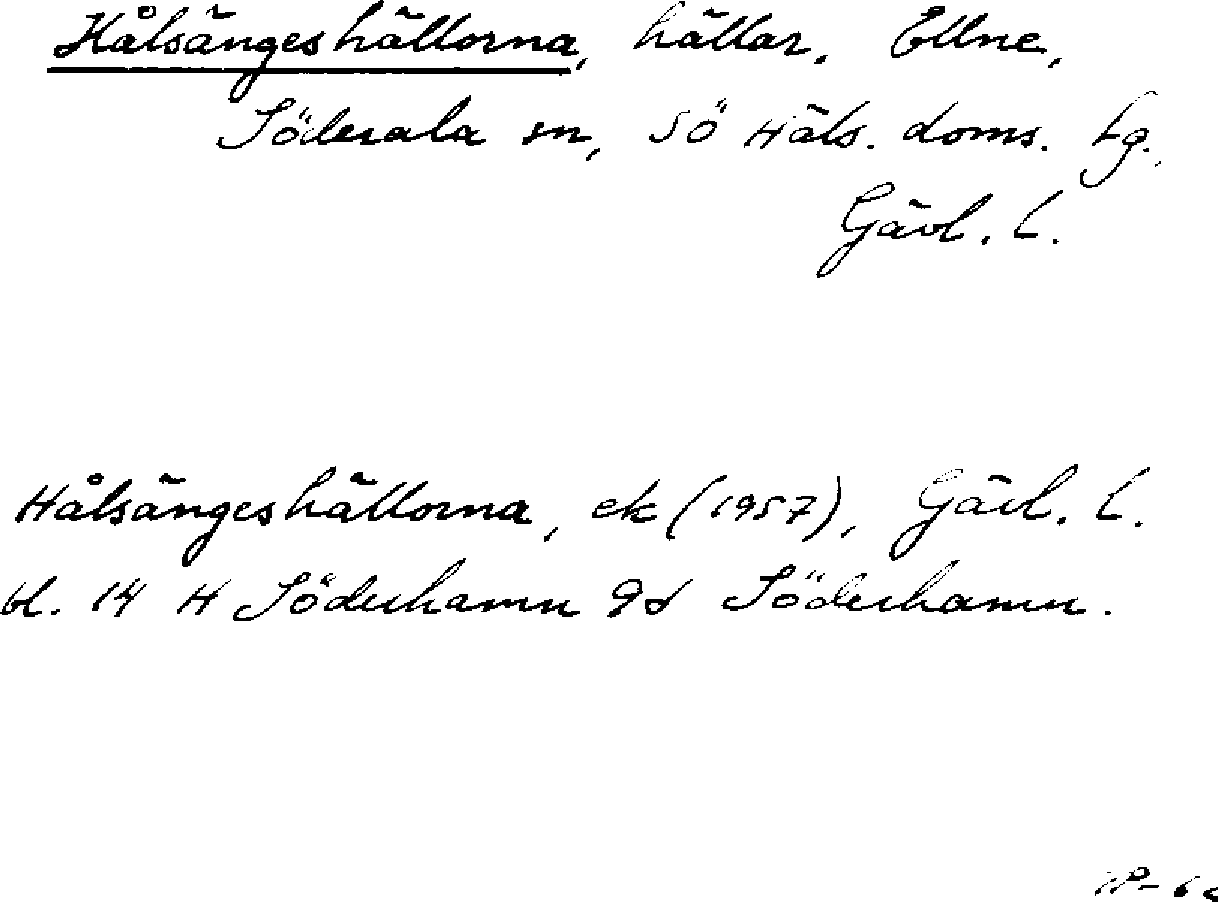 Hålsängeshällorna, hällar. Ellne,
Söderala sn, SÖ Häls. doms. tg.,
Gävl. l.
Hålsängeshällorna, ek (1957), Gävl. l.
bl. 14 H Söderhamn 9d Söderhamn.